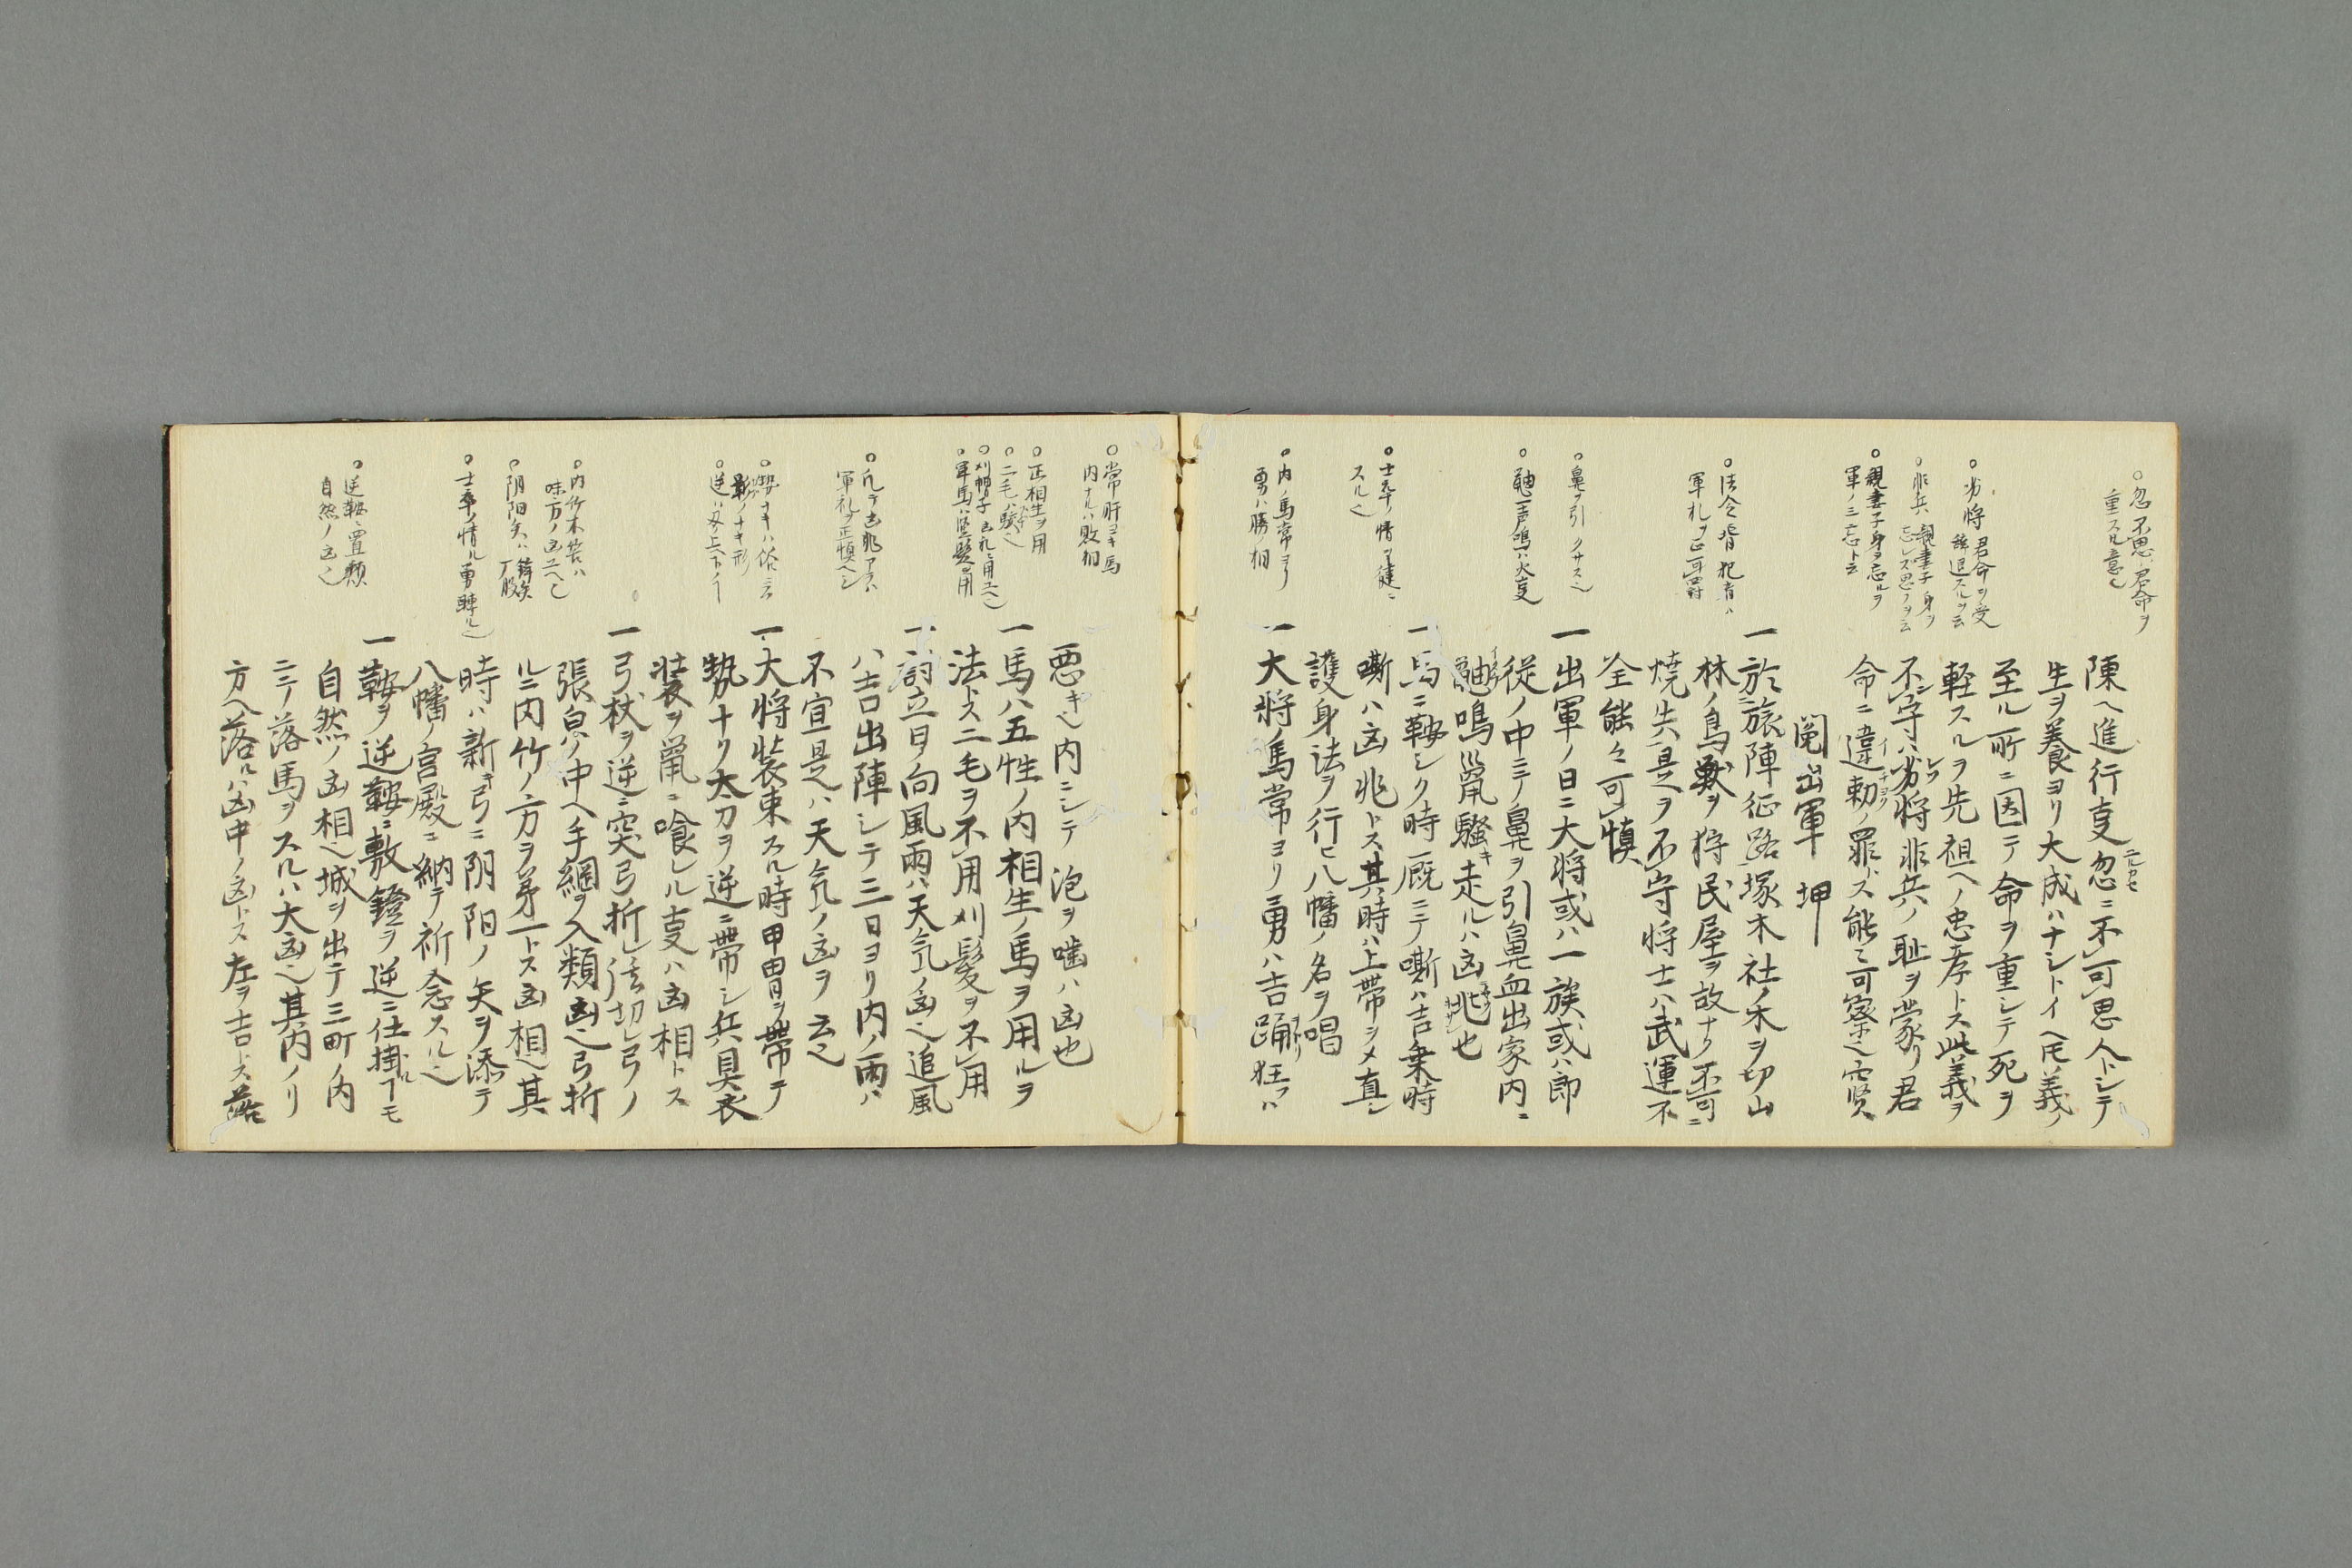 ○忽不思ハ君命ヲ
重スル意也
○劣将 君命ヲ受
辞退スルヲ云
○非兵 親妻子身ヲ
忘レス思フヲ云
○親妻子身ヲ忘ルヲ
軍ノ三忘ト云
○法令背犯者ハ
軍札ヲ正可罸
○鼻ヲ引 クサス也
○鼬一声鳴ハ火叓
○士卒ノ情ヲ健ニ
スル也
○内ノ馬常ヨリ
勇ハ勝ノ相
陳ヘ進行叓忽ニ不可思人トシテ
生ヲ養ヨリ大成ハナシトイヘ𪜈義ノ
至ル所ニ因テ命ヲ重シテ死ヲ
軽スルヲ先祖ヘノ忠孝トス此義ヲ
不守ハ劣将非兵ノ耻ヲ蒙リ君
命ニ違勅ノ罪トス能々可察之賢
閲出軍 坤
一於旅陣征路塚木社ノ禾ヲ切山
林ノ鳥獣ヲ狩民屋ヲ故ナク不可ニ
焼失是ヲ不守将士ハ武運不
全能々可慎
一出軍ノ日ニ大将或ハ一族或ハ郎
従ノ中ニテ鼻ヲ引鼻血出家内ニ
鼬鳴鼠騒キ走ルハ凶兆也
一馬ニ鞍シク時厩ニテ嘶ハ吉乗時
嘶ハ凶兆トス其時ハ上帯シメ直シ
護身法ヲ行ヒ八幡ノ名ヲ唱
一大将ノ馬常ヨリ勇ハ吉踊狂フハ
○常肝ヨキ馬
内ナルハ敗相
○正相生ヲ用
○二毛ハ駁也
○刈帽子
○軍馬ハ竪髪ヲ用
○凡テ凶兆アラハ
軍礼ヲ正慎ヘシ
影ノナキ形
○逆ハ刄ヲ上ヘ
○内竹木筈ハ
味方ノ凶ユヘ也
○阴阳矢ハ鏑矢
○士卒ノ情ル勇轉ル也
○逆鞍ニ置類
自然ノ凶也
悪キ也内ニシテ泡ヲ噛ハ凶也
一馬ハ五性ノ内相生ノ馬ヲ用ルヲ
法トス二毛ヲ不用刈髪ヲ不用
一討立日ノ向風雨ハ天気ノ凶也追風
ハ吉出陣シテ三日ヨリ内ノ雨ハ
不宜是ハ天気ノ凶ヲ云也
一大将裝束スル時甲冑ヲ帶テ
勢ナク太刀ヲ逆ニ帶シ兵具衣
裝ヲ鼠ニ喰レル叓ハ凶相トス
一弓杖ヲ逆ニ突弓折レ弦切レ弓ノ
張㒵ノ中ヘ手綱ヲ入類凶也弓折
ルニ内竹ノ方ヲ㐧一トス凶相也其
時ハ新キ弓ニ阴阳ノ矢ヲ添テ
八幡ノ宮殿ニ納テ祈念スル也
一鞍ヲ逆鞍ニ敷鐙ヲ逆ニ仕掛ルモ
自然ノ凶相也城ヲ出テ三町ノ内
ニテ落馬ヲスルハ大凶也其内ノリ
方ヘ落ルハ凶中ノ凶トス左ヲ吉トス落